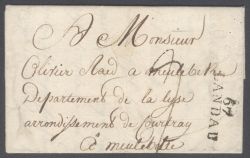 A Monsieur
Olivier
Departement de la lyse
arrondissement de Courtray
A meulebeke
67
LANDAU